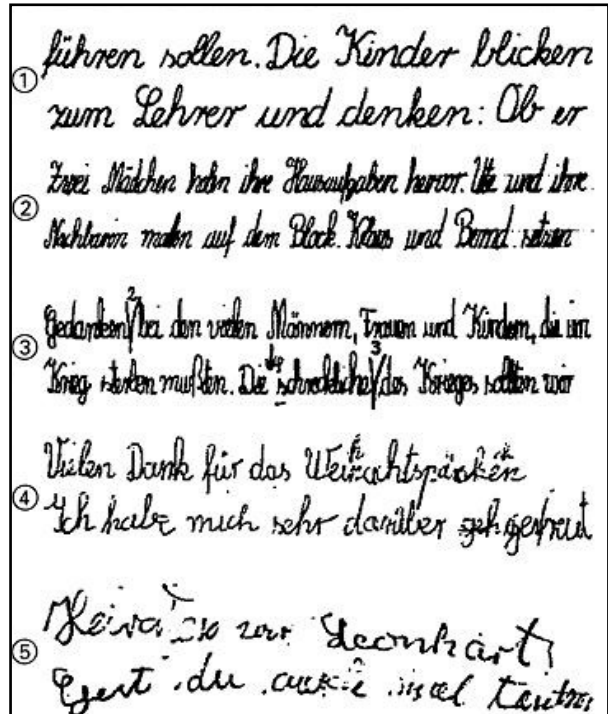 ① führen sollen. Die Kinder blicken
zum Lehrer und denken: Ob er
② Zwei Mädchen holn ihre Hausaufgaben hervor. Ute und ihre
Nachbarin malen auf dem Block. Klaus und Bernd setzen
③ Gedanken 2 bei den vielen Männern, Frauen und Kindern, die im
Krieg sterben mußten. Die schreckliche 3 des Krieges sollten wir
④ Vielen Dank für das
Ich habe mich sehr darüber geh gefreut
⑤ war Leonhart
du mal